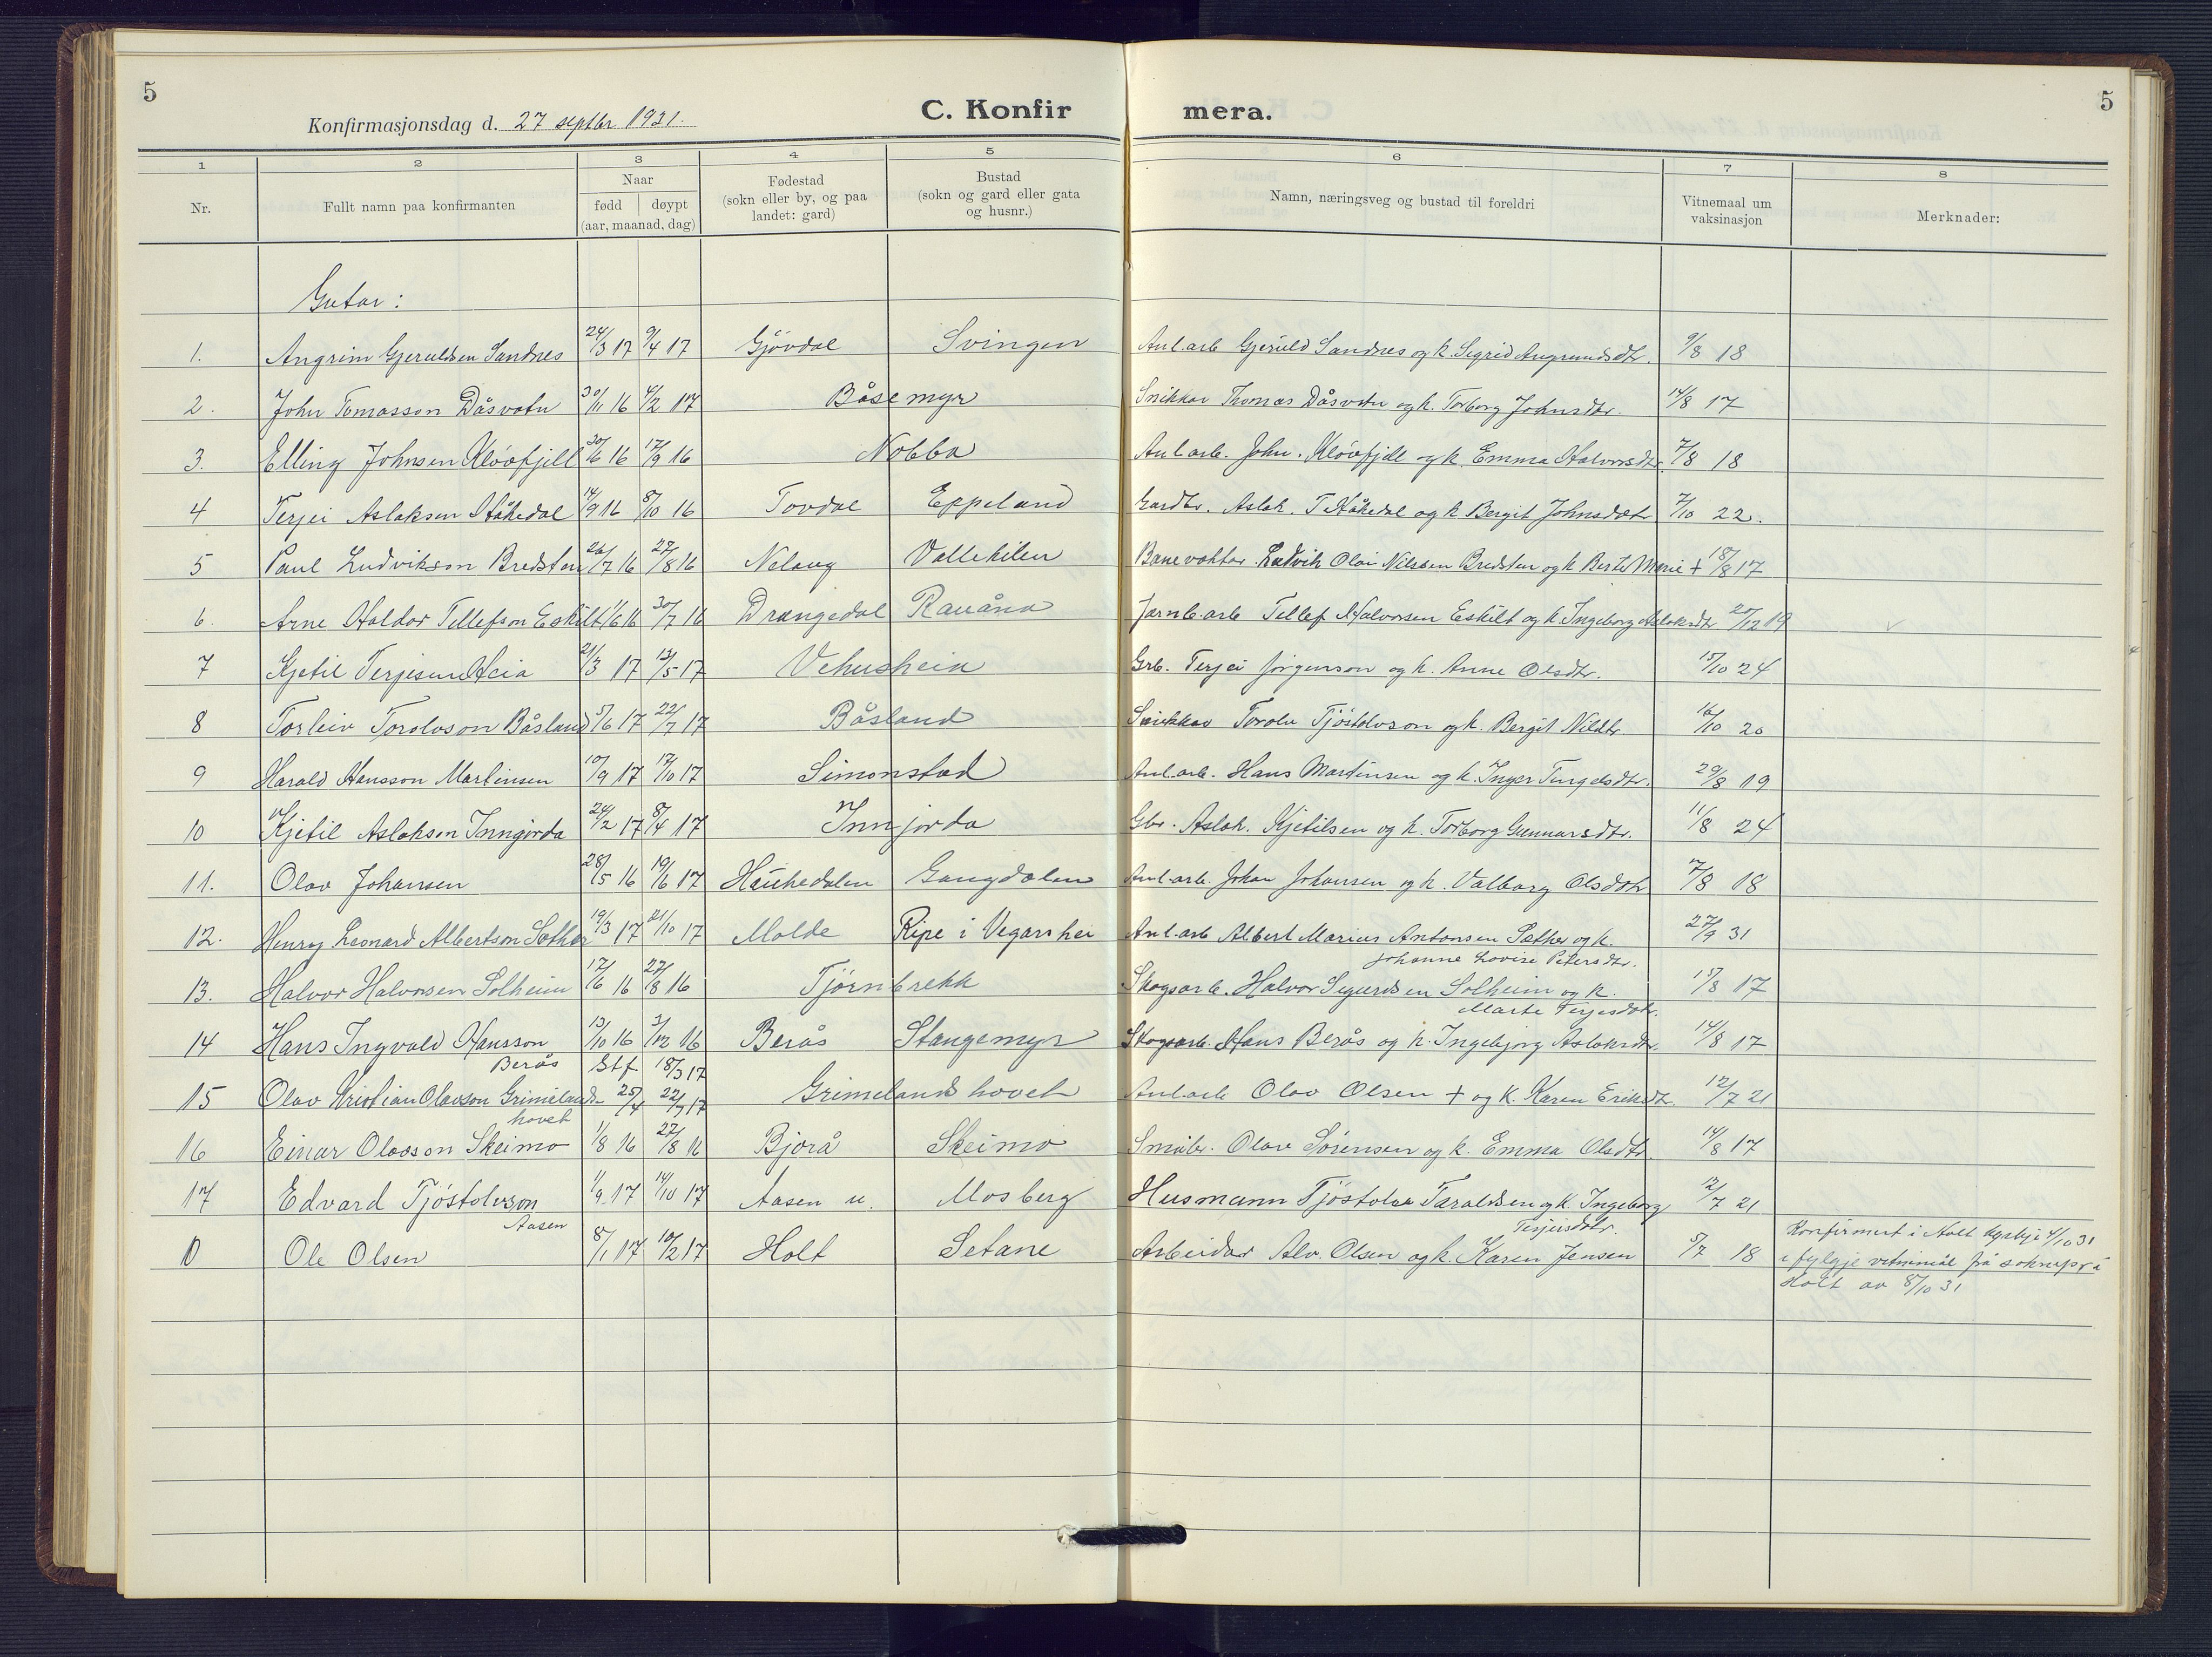 5
Konfirmasjonsdag d. 27 septbr 1931.
C. Konfir mera.
5
1 2 3 4 5 6 7 8
Nr. Fullt namn paa konfirmanten Naar fødd døypt (aar, maanad, dag) Fødestad (sokn eller by, og paa landet: gard) Bustad (sokn og gard eller gata og husnr.) Namn, næringsveg og bustad til foreldri Vitnemaal um vaksinasjon Merknader:
Gutar:
1. Angrim Gjeruldsen Sandnes 24/3 17 9/4 17 Gjövdal Svingen Anl.arb Gjeruld Sandnes og k. Sigrid Angrundsdtr. 9/8 18
2. John Tomasson Dåsvatn 30/11 16 4/2 17 Båsemyr Snikkar Thomas Dåsvatn og k. Torborg Johnsdtr. 14/8 17
3. Elling Johnsen Klövfjell 30/6 16 17/9 16 Nobba Anl.arb. John. Klövfjell og k. Emma Halvorsdtr. 7/8 18
4 Terjei Aslaksen Håkedal 14/9 16 8/10 16 Tovdal Eppeland Gardbr. Aslak. T Håkedal og k Bergit Johnsdotr 7/10 22.
5 Paul Ludvikson Bredsten 26/7 16 27/8 16 Nelaug Vallekilen Banevaktar Ludvik Olai Nilsen Bredsten og k Berte Marie + 18/8 17
6. Arne Haldor Tellefson Eskilt 1/6 16 30/7 16 Drangedal Rauåna Jarnb.arb Tellef Halvorsen Eskilt og k. Ingeborg Aslaksdtr 20/12 19
7 Kjetil Terjesun Heia 21/3 17 13/5 17 Vehusheia Grb. Terjei Jörgenson og k. Anne Olsdtr. 15/10 24
8 Torleiv Torolvson Båsland 5/6 17 22/7 17 Båsland Snikkar Torolv Tjöstolvson og k. Bergit Nildtr. 16/10 20
9 Harald Hansson Martinsen 10/9 17 17/10 17 Simonstad Anl.arb. Hans Martinsen og k. Inger Tengelsdtr. 29/8 19
10 Kjetil Aslakson Inngjorda 24/2 17 8/4 17 Innjorda Gbr. Aslak. Kjetilsen og k. Torborg Gunnarsdtr. 11/8 24
11. Olav Johansen 28/5 16 19/6 17 Haukedalen Gangdalen Anl.arb. Johan Johansen og k. Valborg Olsdotr 7/8 18
12. Henry Leonard Albertson Sæther 19/3 17 21/10 17 Molde Ripe i Vegarshei Anl.arb Albert Marius Antonsen Sæther og k. 27/9 31
Johanne Lovise Petersdtr.
13. Halvor Halvorsen Solheim 17/6 16 27/8 16 Tjörnbrekk Skogsarb. Halvor Sigurdsen Solheim og k. 15/8 17
Marte Terjesdotr.
14 Hans Ingvald Hansson 13/10 16 3/12 16 Berås Stangemyr Skogsarb. Hans Berås og k. Ingebjørg Aslaksdtr. 14/8 17
Berås Stf. 18/3 17
15 Olav Kristian Olavson Grimelands 25/4 22/7 17 Grimelandshovet Anl.arb Olav Olsen + og k. Karen Eriksdtr. 12/7 21
hovet
16 Einar Olavson Skeimo 1/8 16 27/8 16 Bjorå Skeimo Småbr. Olav Sörensen og k. Emma Olsdtr. 14/8 17
17 Edvard Tjöstolvson 1/9 17 14/10 17 Aasen u. Mosberg Husmann Tjöstolv Taraldsen og k. Ingeborg 12/7 21
Aasen Terjeisdotr.
0 Ole Olsen 8/1 17 10/2 17 Holt Setane Arbeidar Alv. Olsen og k. Karen Jensen 5/7 18 Konfirmert i Holt kyrkje 4/10 31
i fylgje vitnemål frå soknepr i
Holt av 8/10 31